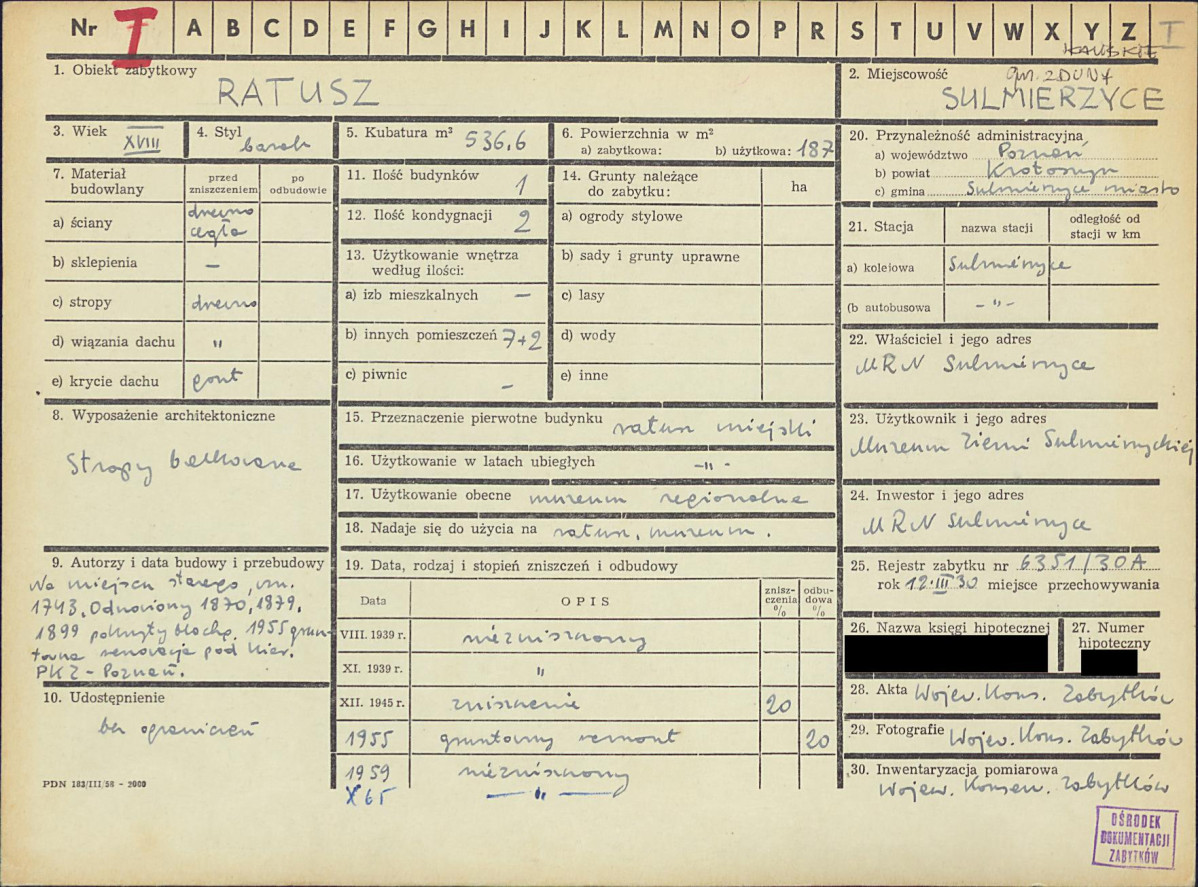 Nr I A B C D E F G H I J K L M N O P R S T U V W X Y Z I
KALISKIE
1. Obiekt zabytkowy
RATUSZ
2. Miejscowość gm. ZDUNY
SULMIERZYCE
3. Wiek XVIII
4. Styl barok
5. Kubatura m³ 536,6
6. Powierzchnia w m²
a) zabytkowa: b) użytkowa: 187
7. Materiał budowlany
przed zniszczeniem
po odbudowie
a) ściany drewno
cegła
b) sklepienia —
c) stropy drewno
d) wiązania dachu "
e) krycie dachu gont
8. Wyposażenie architektoniczne
Stropy belkowane
9. Autorzy i data budowy i przebudowy
Na miejscu starego, wzn.
1743. Odnowiony 1870, 1879,
1899 pokryty blachą. 1955 grun-
towna renowacja pod kier.
PKZ - Poznań.
10. Udostępnienie
bez ograniczeń
PDN 183/III/56 - 2000
11. Ilość budynków 1
12. Ilość kondygnacji 2
13. Użytkowanie wnętrza
według ilości:
a) izb mieszkalnych —
b) innych pomieszczeń 7+2
c) piwnic —
14. Grunty należące
do zabytku:
ha
a) ogrody stylowe
b) sady i grunty uprawne
c) lasy
d) wody
e) inne
15. Przeznaczenie pierwotne budynku ratusz miejski
16. Użytkowanie w latach ubiegłych -"-
17. Użytkowanie obecne muzeum regionalne
18. Nadaje się do użycia na ratusz, muzeum.
19. Data, rodzaj i stopień zniszczeń i odbudowy
Data
OPIS
znisz-
czenia
%
odbu-
dowa
%
VIII. 1939 r. niezniszczony
XI. 1939 r. "
XII. 1945 r. zniszczenie 20
1955 gruntowny remont 20
1959 niezniszczony
X 65 — " —
20. Przynależność administracyjna
a) województwo Poznań
b) powiat Krotoszyn
c) gmina Sulmierzyce miasto
21. Stacja
nazwa stacji
odległość od
stacji w km
a) kolejowa Sulmierzyce
(b autobusowa - " -
22. Właściciel i jego adres
MRN Sulmierzyce
23. Użytkownik i jego adres
Muzeum Ziemi Sulmierzyckiej
24. Inwestor i jego adres
MRN Sulmierzyce
25. Rejestr zabytku nr 6351/30A
rok 12.III.30 miejsce przechowywania
26. Nazwa księgi hipotecznej
27. Numer
hipoteczny
28. Akta Wojew. Kons. Zabytków
29. Fotografie Wojew. Kons. Zabytków
30. Inwentaryzacja pomiarowa
Wojew. Konserw. Zabytków
OŚRODEK
DOKUMENTACJI
ZABYTKÓW